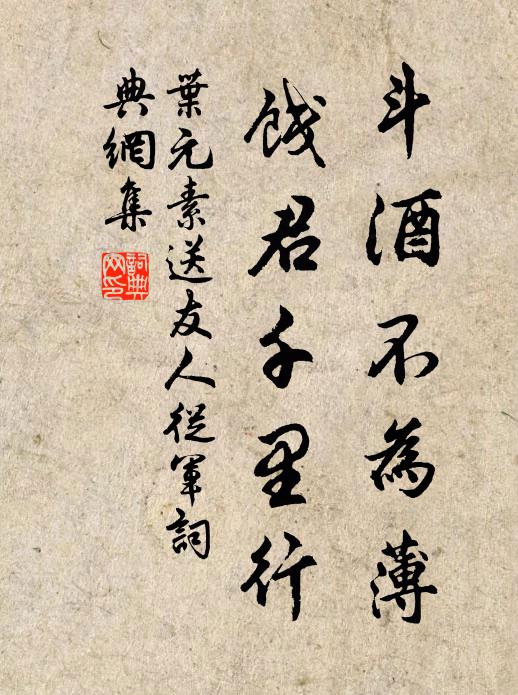 斗酒不為薄
餞君千里行
葉元素送友人從軍詞
典網集
詞典網印